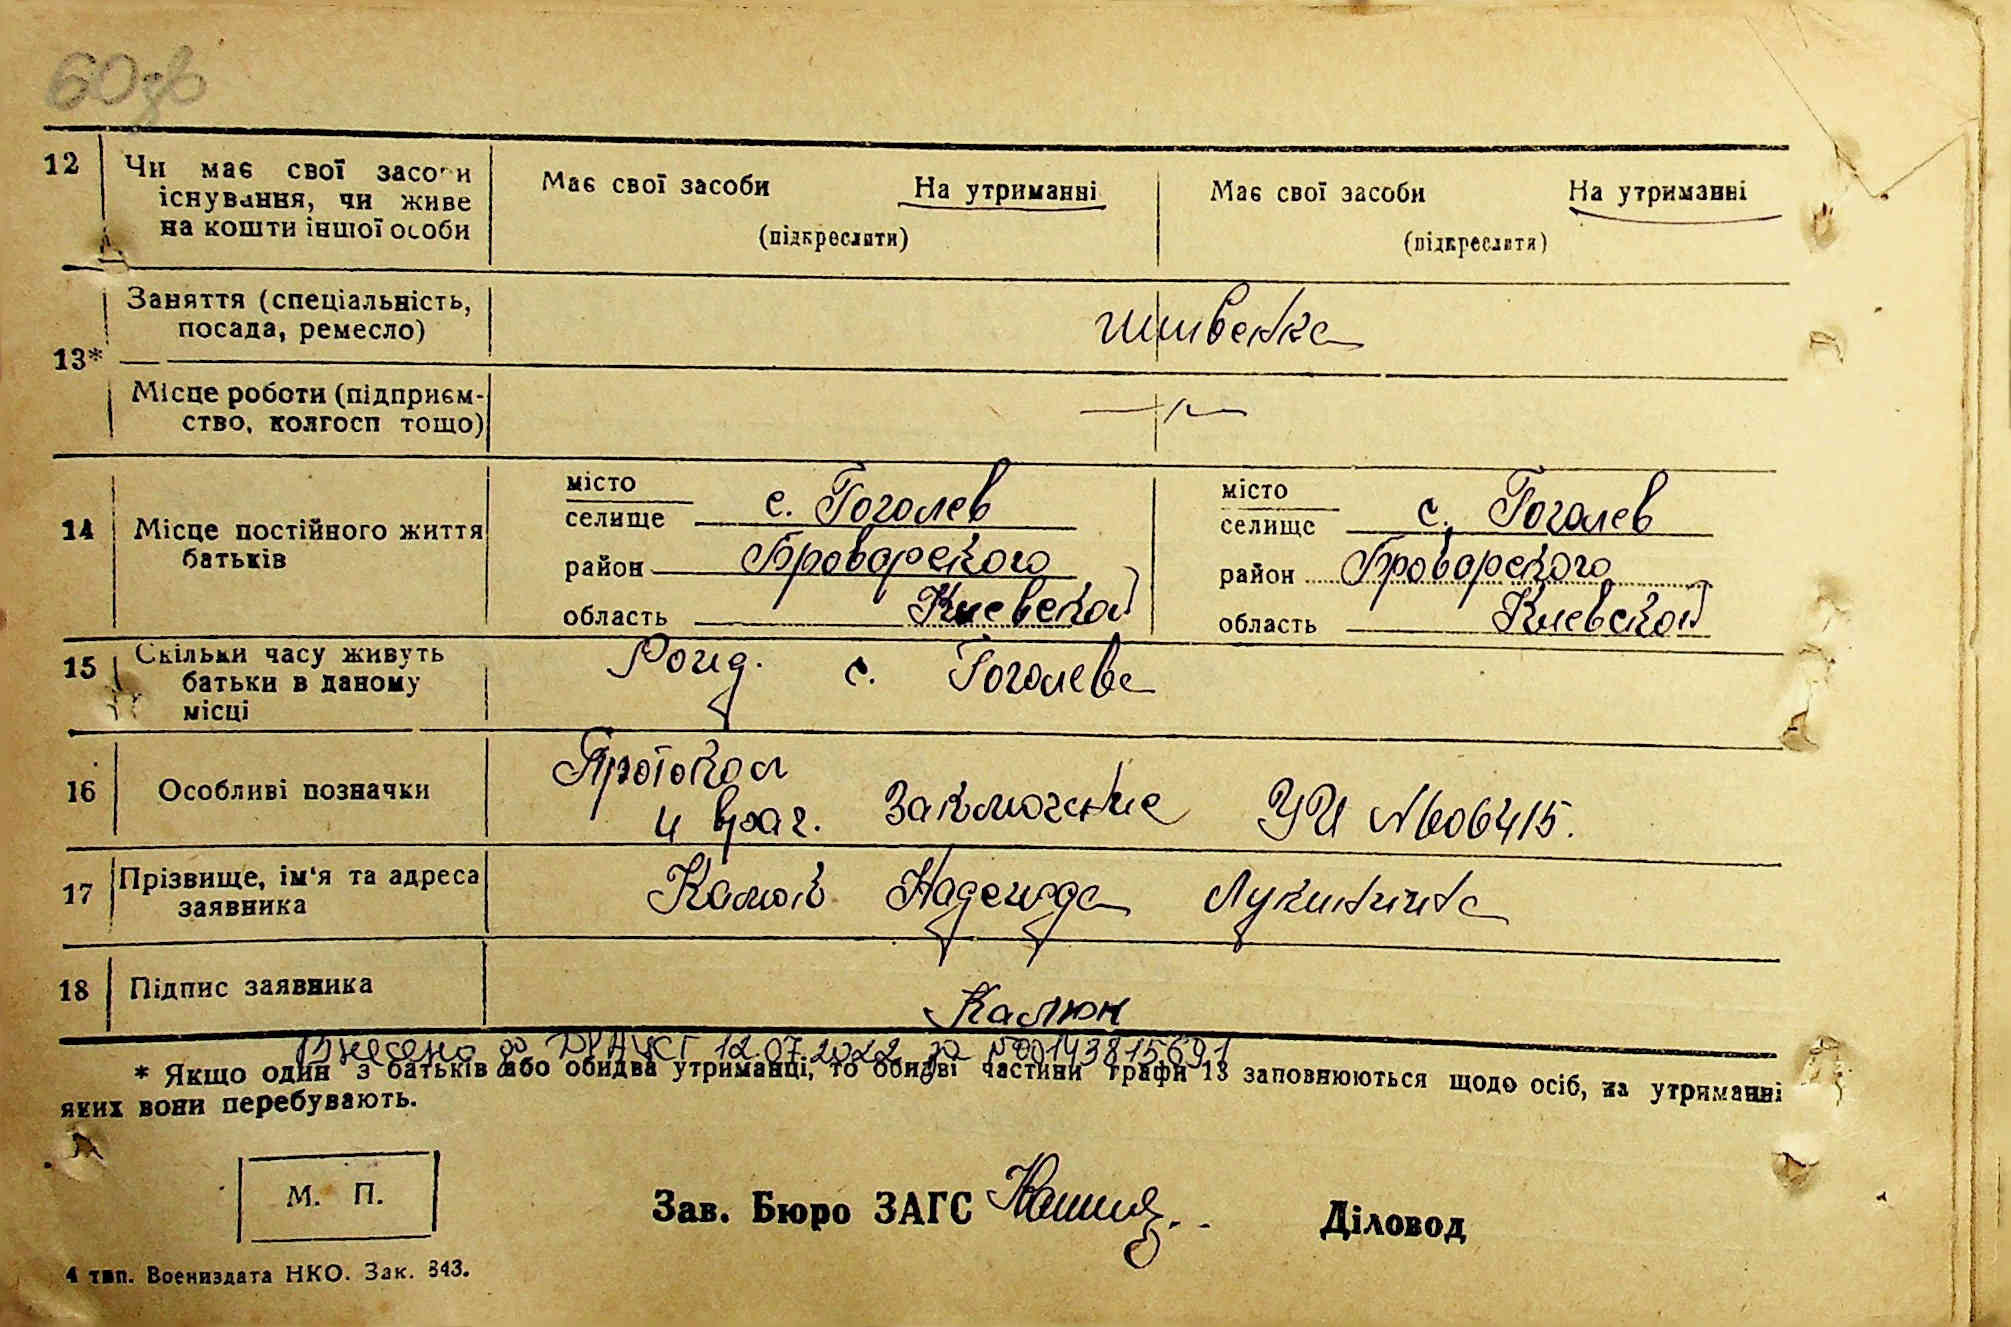 60зв
12 Чи має свої засоби Має свої засоби На утриманні Має свої засоби На утриманні
існування, чи живе
на кошти іншої особи (підкреслити) (підкреслити)
13* Заняття (спеціальність,
посада, ремесло) швейка
Місце роботи (підприєм-
ство, колгосп тощо)
14 Місце постійного життя
батьків
місто
селище с. Гоголев
район Броварского
область Киевской
місто
селище с. Гоголев
район Броварского
область Киевской
15 Скільки часу живуть
батьки в даному
місці
с. Гоголеве
16 Особливі позначки Протокол
и врач. Заключение УРИ №606415.
17 Прізвище, ім'я та адреса
заявника Калюк Надежда Лукинична
18 Підпис заявника Калюк
Внесено до ДРАЦСГ 12.07.2022 за №00143815691
* Якщо один з батьків або обидва утриманці, то обидві частини графи 13 заповнюються щодо осіб, на утриманні
яких вони перебувають.
М. П.
Зав. Бюро ЗАГС Діловод
4 тип. Воениздата НКО. Зак. 843.